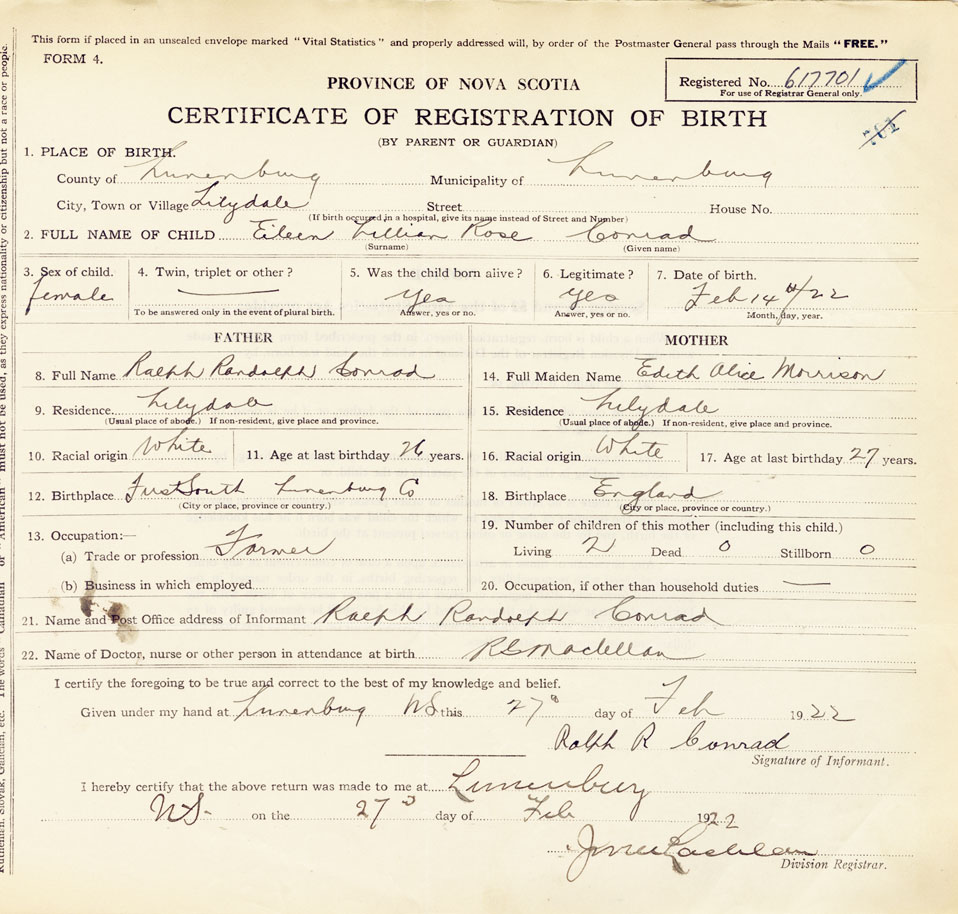 This form if placed in an unsealed envelope marked "Vital Statistics" and properly addressed will, by order of the Postmaster General pass through the Mails "FREE."
FORM 4.
PROVINCE OF NOVA SCOTIA
Registered No. 617701
For use of Registrar General only.
CERTIFICATE OF REGISTRATION OF BIRTH
701
(BY PARENT OR GUARDIAN)
1. PLACE OF BIRTH.
County of Lunenburg Municipality of Lunenburg
City, Town or Village Lilydale Street House No.
(If birth occurred in a hospital, give its name instead of Street and Number)
2. FULL NAME OF CHILD Eileen Lillian Rose Conrad
(Surname) (Given name)
3. Sex of child. 4. Twin, triplet or other? 5. Was the child born alive? 6. Legitimate? 7. Date of birth.
female Yes yes Feb 14th/22
To be answered only in the event of plural birth. Answer, yes or no. Answer, yes or no. Month, day, year.
FATHER MOTHER
8. Full Name Ralph Randolph Conrad 14. Full Maiden Name Edith Alice Morrison
9. Residence Lilydale 15. Residence Lilydale
(Usual place of abode.) If non-resident, give place and province. (Usual place of abode.) If non-resident, give place and province.
10. Racial origin White 11. Age at last birthday 26 years. 16. Racial origin White 17. Age at last birthday 27 years.
12. Birthplace First South Lunenburg Co 18. Birthplace England
(City or place, province or country.) (City or place, province or country.)
13. Occupation:— 19. Number of children of this mother (including this child.)
(a) Trade or profession Farmer Living 2 Dead 0 Stillborn 0
(b) Business in which employed 20. Occupation, if other than household duties —
21. Name and Post Office address of Informant Ralph Randolph Conrad
22. Name of Doctor, nurse or other person in attendance at birth Maclellan
I certify the foregoing to be true and correct to the best of my knowledge and belief.
Given under my hand at Lunenburg NS this 27 day of Feb 1922
Ralph R Conrad
Signature of Informant.
I hereby certify that the above return was made to me at Lunenburg
NS on the 27 day of Feb 1922
Division Registrar.